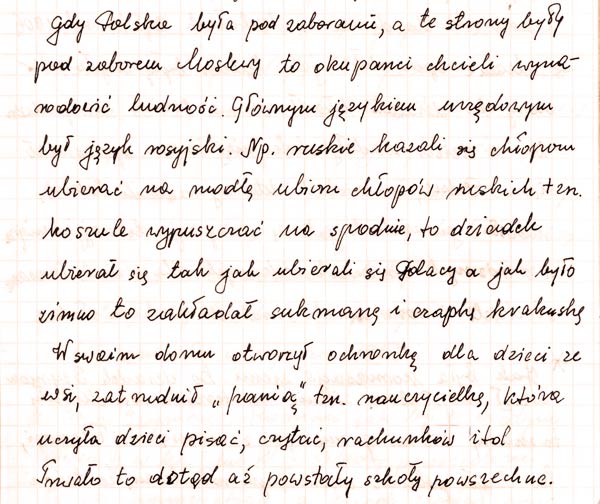 Gdy Polska była pod zaborami, a te strony były
pod zaborem Moskwy to okupanci chcieli wyna-
rodowić ludność. Głównym językiem urzędowym
był język rosyjski. Np. ruskie kazali się chłopom
ubierać na modłę ubioru chłopów ruskich tzn.
koszule wypuszczać na spodnie, to dziadek
ubierał się tak jak ubierali się Polacy a jak było
zimno to zakładał sukmanę i czapkę krakuskę
W swoim domu otworzył ochronkę dla dzieci ze
wsi, zatrudnił „panią" tzn. nauczycielkę, która
uczyła dzieci pisać, czytać, rachunków itd
Trwało to dotąd aż powstały szkoły powszechne.